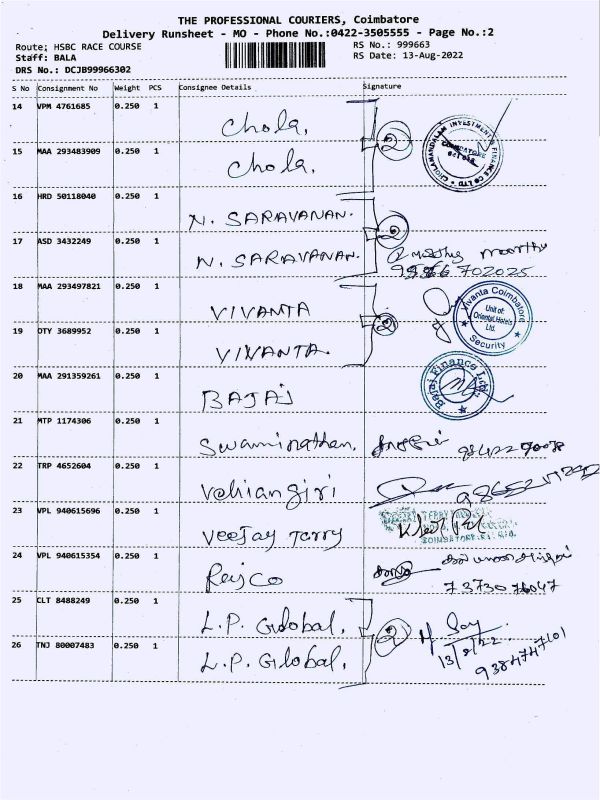 THE PROFESSIONAL COURIERS, Coimbatore
Delivery Runsheet - MO - Phone No.:0422-3505555 - Page No.:2
Route; HSBC RACE COURSE
RS No.: 999663
Staff: BALA
RS Date: 13-Aug-2022
DRS No.: DCJB99966302
S No Consignment No Weight PCS Consignee Details Signature
14 VPM 4761685 0.250 1 Chola.
15 MAA 293483909 0.250 1 Chola. 2
CHOLAMANDALAM INVESTMENT & FINANCE CO LTD
COIMBATORE
16 HRD 50118040 0.250 1 N. SARAVANAN.
17 ASD 3432249 0.250 1 N. SARAVANAN. 2 moorthy
702025
18 MAA 293497821 0.250 1 VIVANTA
19 OTY 3689952 0.250 1 VIVANTA. 2
Vivanta Coimbatore
Unit of:
Oriental Hotels
Ltd.
Security
20 MAA 291359261 0.250 1 BAJAJ
Bajaj Finance Ltd.
21 MTP 1174306 0.250 1 Swaminathan.
22 TRP 4652604 0.250 1 Velliangiri
23 VPL 940615696 0.250 1 Veejay Terry
24 VPL 940615354 0.250 1 Rejsco
73730 76047
25 CLT 8488249 0.250 1 L.P. Global.
26 TNJ 80007483 0.250 1 L.P. Global. 2
13/8/22